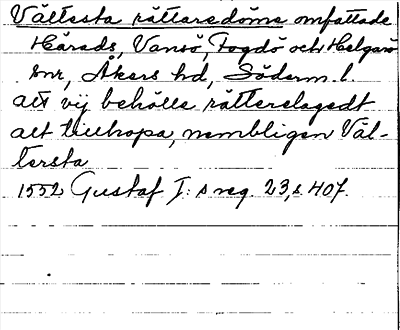 Vältesta rättaredöme omfattade
Härads, Vansö, Fogdö och Helgarö
snr, Åkers hd, Söderm. l.
att vij behölle rätterelagedt
alt tillhopa, nembligen Väl-
tersta
1552 Gustaf I:s reg. 23, s 407.